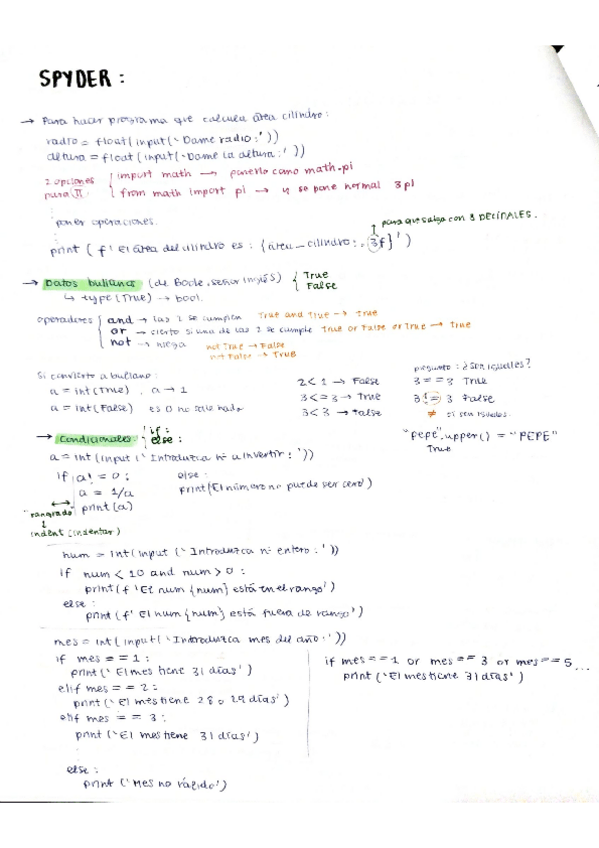 SPYDER :
→ Para hacer programa que calcula área cilindro:
radio = float(input('Dame radio:'))
altura = float(input('Dame la altura:'))
2 opciones para π { import math → ponerlo como math.pi
from math import pi → y se pone normal 3 pi
poner operaciones.
para que salga con 3 DECIMALES.
print (f' El área del cilindro es : {área_cilindro:.3f}')
→ Datos bulianos (de Boole, señor inglés) { True
False
↳ type(True) → bool.
operadores { and → las 2 se cumplen True and True → True
or → cierto si una de las 2 se cumple True or False or True → True
not → niega not True → False
not False → True
Si convierto a buliano:
a = int(True) , a → 1
a = int(False) es 0 no sale nada
2 < 1 → False
3 <= 3 → True
3 < 3 → False
pregunta : ¿son iguales?
3 == 3 True
3 != 3 False
≠ si son iguales.
"pepe".upper() = "PEPE"
True
→ Condicionales: { if :
else :
a = int(input('Introduzca nº a invertir:'))
if a != 0 :
a = 1/a
print(a)
"rangrado"
↓
indent (indentar)
else :
print(El número no puede ser cero')
num = int(input ('Introduzca nº entero :'))
if num < 10 and num > 0 :
print(f 'El num {num} está en el rango')
else :
print(f' El num {num} está fuera de rango')
mes = int(input('Introduzca mes del año:'))
if mes == 1 :
print('El mes tiene 31 días')
elif mes == 2 :
print('El mes tiene 28 o 29 días')
elif mes == 3 :
print('El mes tiene 31 días')
else :
print ('Mes no válido')
if mes == 1 or mes == 3 or mes == 5 ...
print('El mes tiene 31 días')